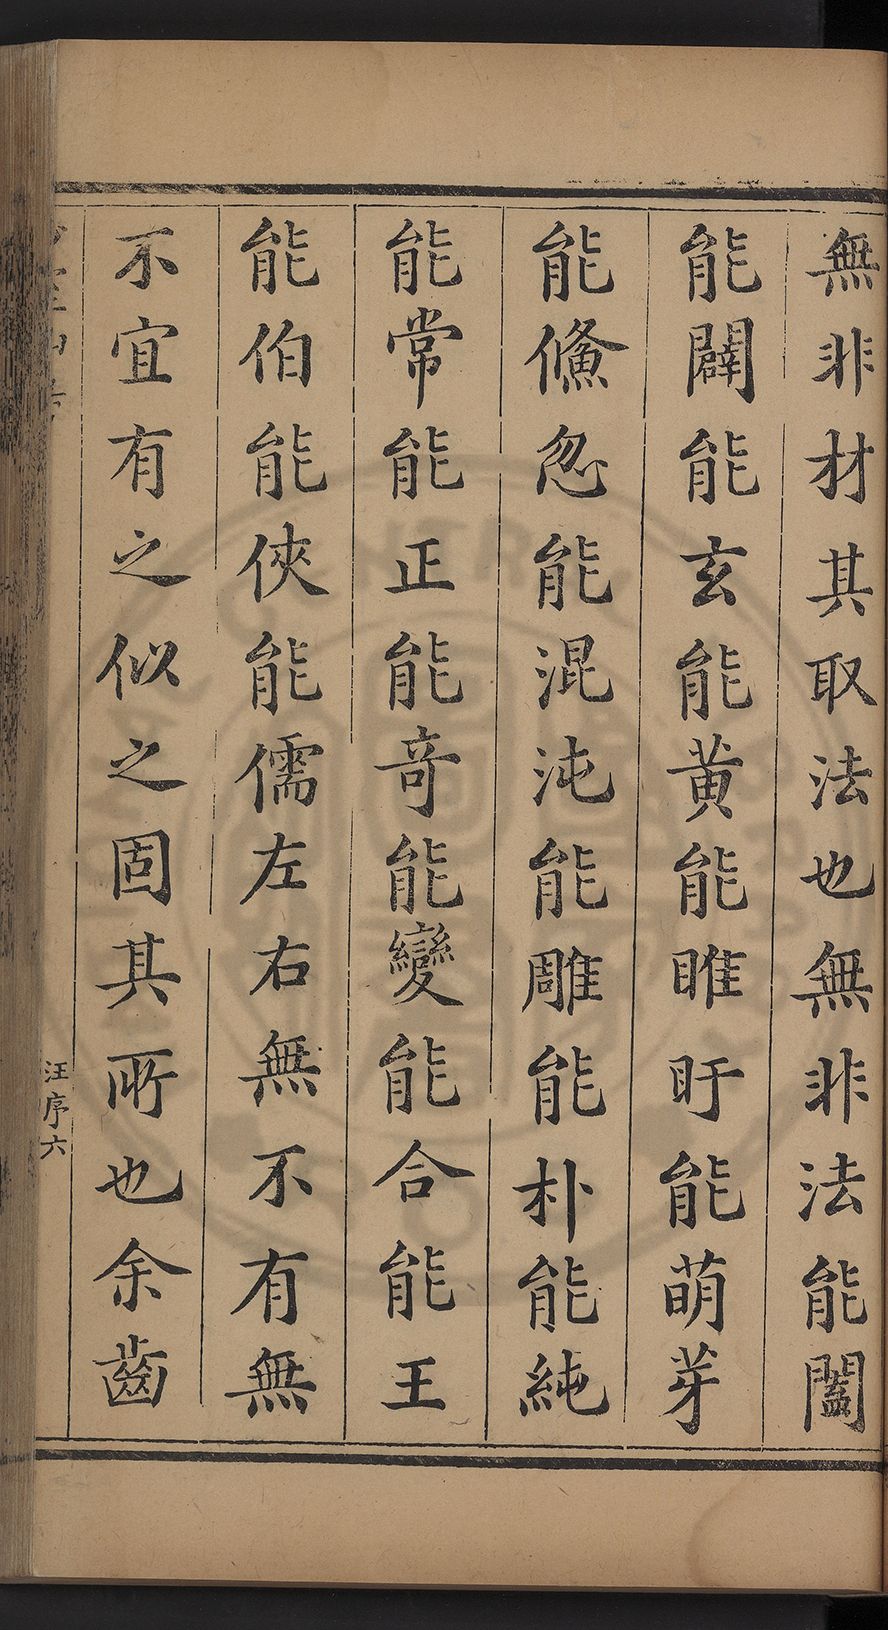 無非材其取法也無非法能闔
能闢能玄能黃能睢盱能萌芽
能儵忽能混沌能雕能朴能純
能常能正能奇能變能合能王
能伯能俠能儒左右無不有無
不宜有之似之固其所也余齒
汪序六